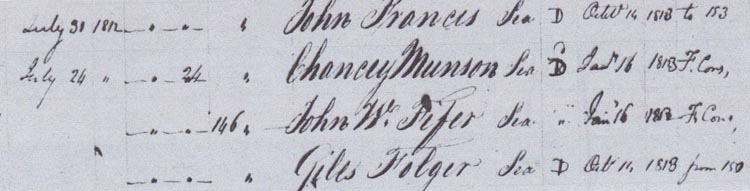 July 31 1812 — " — " — " John Francis Sea D Octr 14 1813 to 153
July 24 " — " — 24 " Chancey Munson Sea D Jany 16 1813 F. Cons,
— " — " — 146 " John Wr. Fifer Sea " Jany 16 1813 F. Cons,
— " — " — " Giles Folger Sea D Octr 14 1813 from 150